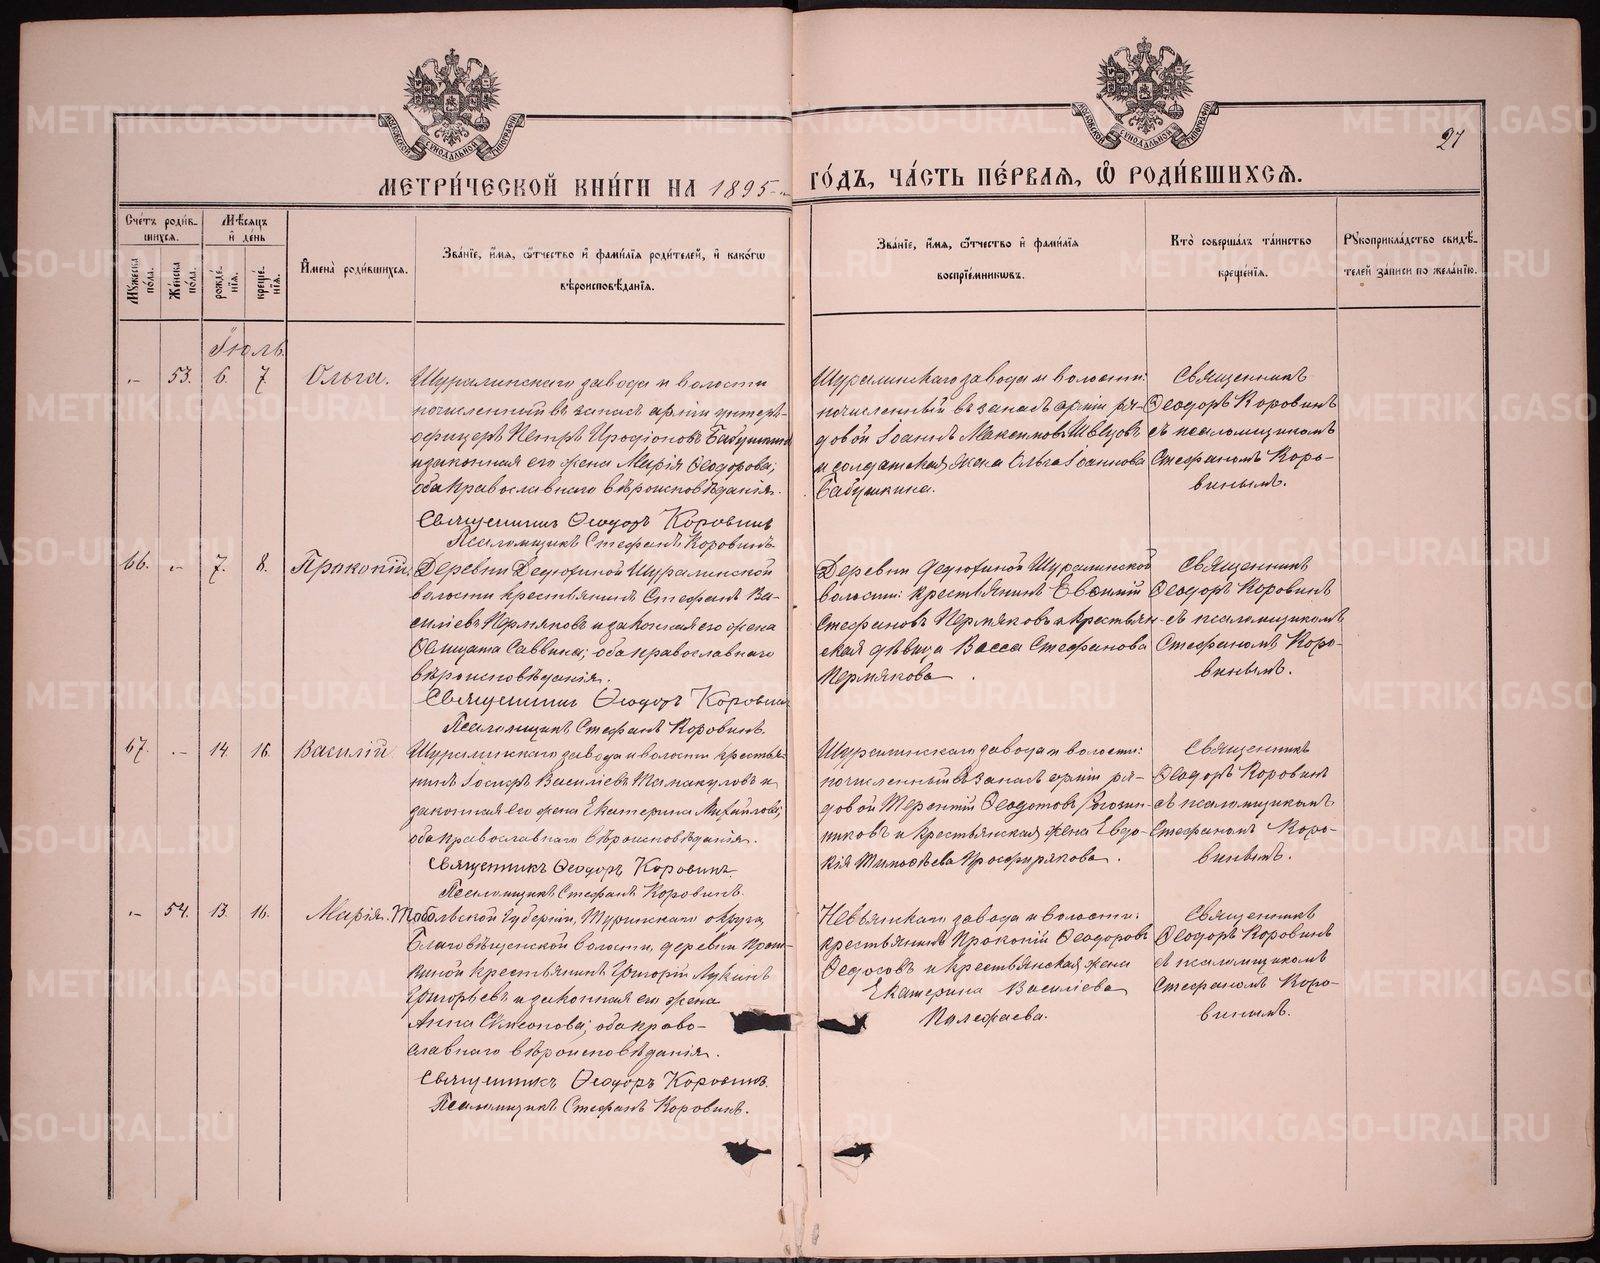 МЕТРИ́ЧЕСКОЙ КНИ́ГИ НА 1895
ГО́ДЪ, ЧА́СТЬ ПЕ́РВАѦ, Ѡ҆ РОДИ́ВШИХСѦ.
27
Сче́тъ роди́в-
шихсѧ.
Мѣ́сѧцъ
и҆ де́нь
Мꙋ́жеска
по́ла.
Же́нска
по́ла.
рожде́-
нїѧ.
креще́-
нїѧ.
И҆мена̀ роди́вшихсѧ.
Зва́нїе, и҆́мѧ, ѻ҆́тчество и҆ фами́лїѧ роди́телей, и҆ како́гѡ
вѣроисповѣ́данїѧ.
Зва́нїе, и҆́мѧ, ѻ҆́тчество и҆ фами́лїѧ
воспрїе́мниковъ.
Кто̀ соверша́лъ та́инство
креще́нїѧ.
Рꙋкоприкла́дство свидѣ́-
телей за́писи по жела́нїю.
Іюль.
53. 6. 7. Ольга.
Шуралинскаго завода и волости
зачисленный въ запасъ арміи унтеръ-
офицеръ Петръ Иродіоновъ Бабушкинъ
и законная его жена Марія Ѳеодорова;
оба православнаго вѣроисповѣданія.
Священникъ Ѳеодоръ Коровинъ
Псаломщикъ Стефанъ Коровинъ
Шуралинскаго завода и волости:
зачисленный въ запасъ арміи ря-
довой Іоаннъ Максимовъ Швецовъ
и солдатская жена Ольга Іоаннова
Бабушкина.
Священникъ
Ѳеодоръ Коровинъ
съ псаломщикомъ
Стефаномъ Коро-
винымъ.
66. 7. 8. Прокопій.
Деревни Федюниной Шуралинской
волости крестьянинъ Стефанъ Ва-
сильевъ Пермяковъ и законная его жена
Саввина; оба православнаго
вѣроисповѣданія.
Священникъ Ѳеодоръ Коровинъ
Псаломщикъ Стефанъ Коровинъ.
Деревни Федюниной Шуралинской
волости: крестьянинъ
Стефановъ Пермяковъ и крестьян-
ская дѣвица Васса Стефанова
Пермякова.
Священникъ
Ѳеодоръ Коровинъ
съ псаломщикомъ
Стефаномъ Коро-
винымъ.
67. 14 16. Василій
Шуралинскаго завода и волости крестья-
нинъ Іосифъ Васильевъ Тамакуловъ и
законная его жена Екатерина Михайлова;
оба православнаго вѣроисповѣданія.
Священникъ Ѳеодоръ Коровинъ.
Псаломщикъ Стефанъ Коровинъ.
Шуралинскаго завода и волости:
зачисленный въ запасъ арміи ря-
довой Терентій Ѳеодотовъ Рогозин-
никовъ и крестьянская жена Евдо-
кія Тимоѳеева Просфирякова.
Священникъ
Ѳеодоръ Коровинъ
съ псаломщикомъ
Стефаномъ Коро-
винымъ.
54. 13. 16. Марія.
Тобольской губерніи, Туринскаго округа,
Благовѣщенской волости, деревни
крестьянинъ Григорій Лукинъ
Григорьевъ и законная его жена
Анна Симеонова; оба право-
славнаго вѣроисповѣданія.
Священникъ Ѳеодоръ Коровинъ.
Псаломщикъ Стефанъ Коровинъ.
Невьянскаго завода и волости:
крестьянинъ Прокопій Ѳеодоровъ
Ѳедосовъ и крестьянская жена
Екатерина Васильева
Палефаева.
Священникъ
Ѳеодоръ Коровинъ
съ псаломщикомъ
Стефаномъ Коро-
винымъ.
METRIKI.GASO-URAL.RU